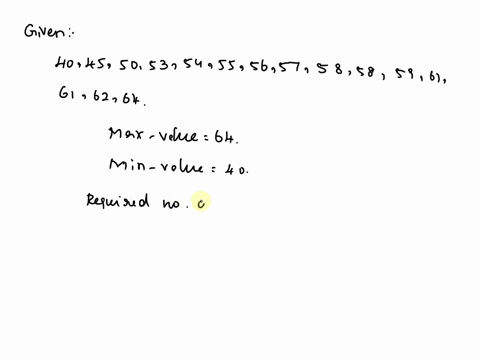 Given:-
40, 45, 50, 53, 54, 55, 56, 57, 58, 58, 59, 61,
61, 62, 64.
Max-value = 64.
Min-value = 40.
Required no. o